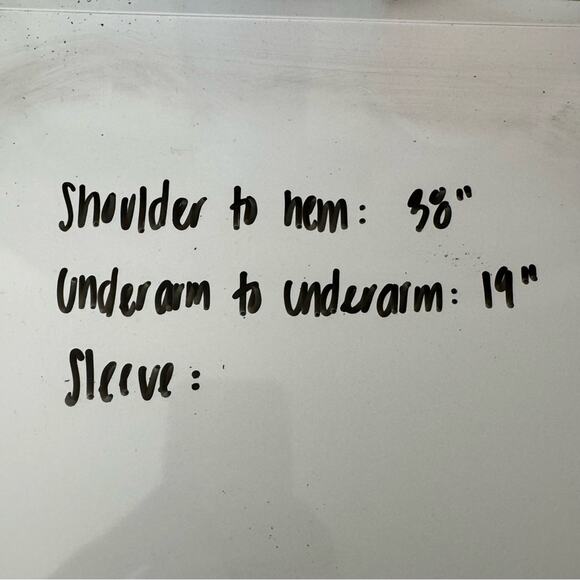 Shoulder to hem: 38"
Underarm to underarm: 19"
Sleeve: